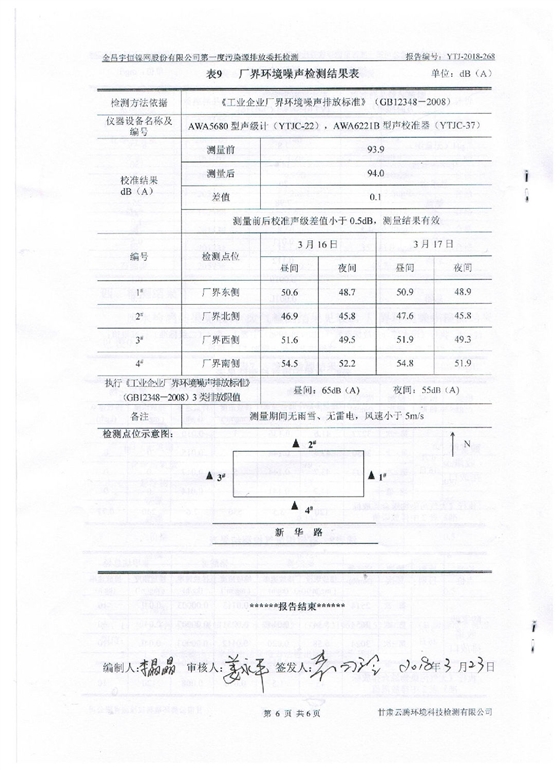 金昌宇恒镍网股份有限公司第一度污染源排放委托检测 报告编号：YTJ-2018-268
表9 厂界环境噪声检测结果表 单位：dB（A）
检测方法依据 《工业企业厂界环境噪声排放标准》（GB12348－2008）
仪器设备名称及编号 AWA5680 型声级计（YTJC-22），AWA6221B 型声校准器（YTJC-37）
校准结果 dB（A） 测量前 93.9
测量后 94.0
差值 0.1
测量前后校准声级差值小于 0.5dB，测量结果有效
编号 检测点位 3 月 16 日 3 月 17 日
昼间 夜间 昼间 夜间
1# 厂界东侧 50.6 48.7 50.9 48.9
2# 厂界北侧 46.9 45.8 47.6 45.8
3# 厂界西侧 51.6 49.5 51.9 49.3
4# 厂界南侧 54.5 52.2 54.8 51.9
执行《工业企业厂界环境噪声排放标准》（GB12348－2008）3 类排放限值 昼间：65dB（A） 夜间：55dB（A）
备注 测量期间无雨雪、无雷电，风速小于 5m/s
检测点位示意图：
▲ 2# N
▲ 3# ▲ 1#
▲ 4#
新 华 路
******报告结束******
编制人：李晶晶 审核人：姜永平 签发人： 2018年 3 月 23 日
第 6 页 共 6 页 甘肃云腾环境科技检测有限公司